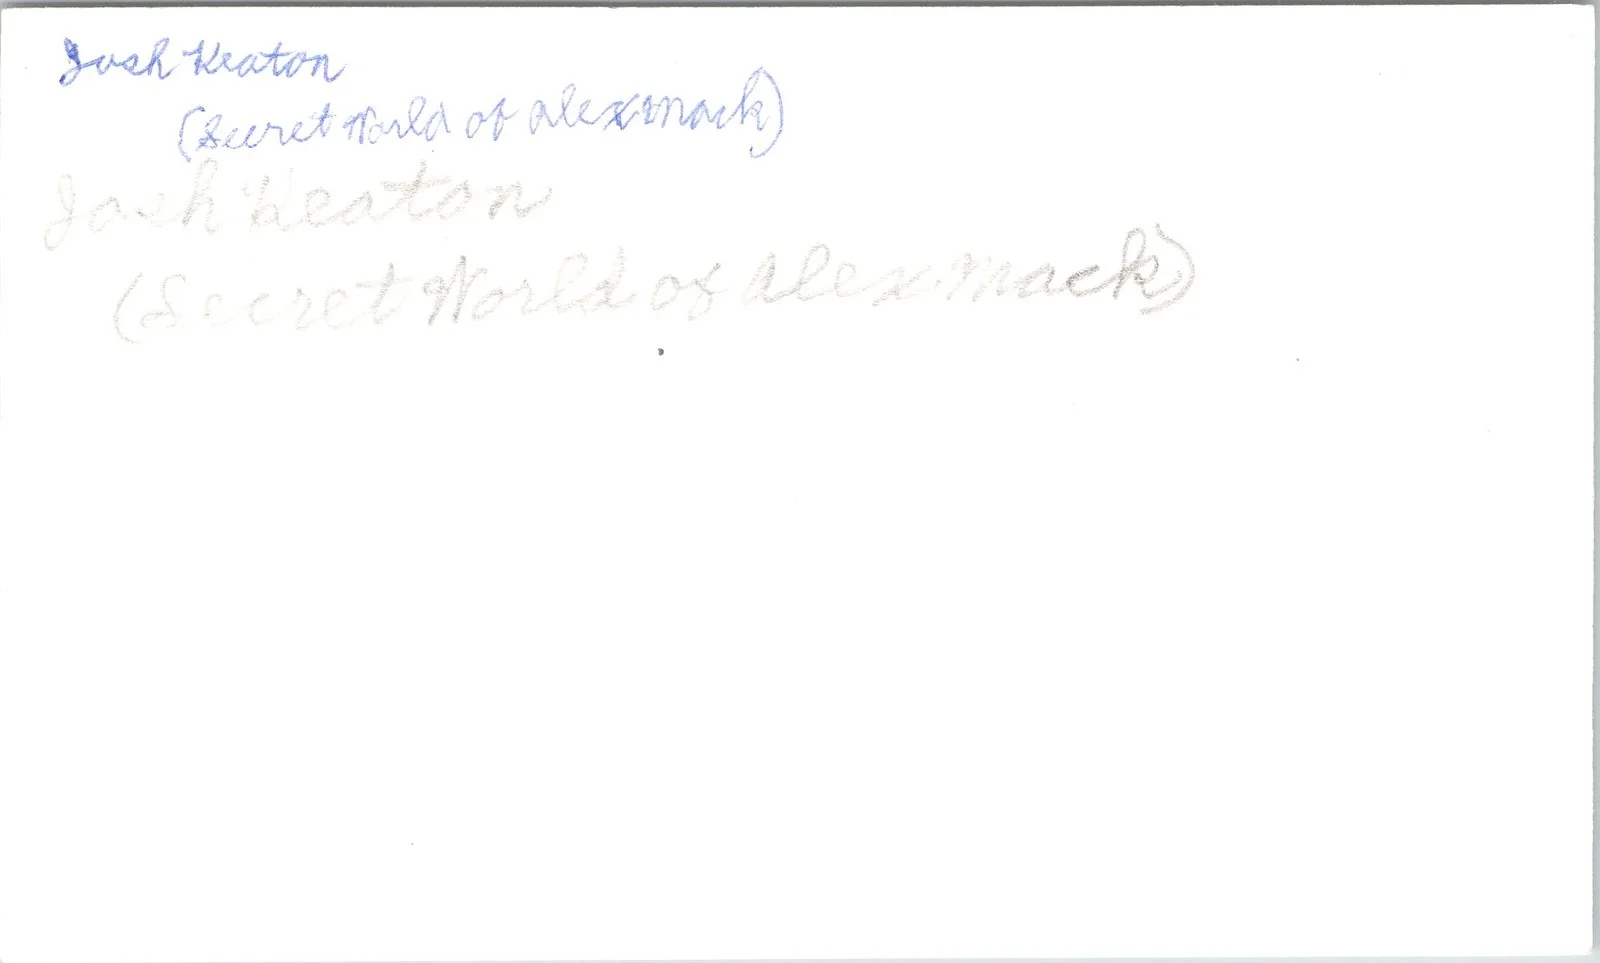 Josh Keaton
(Secret World of Alex Mack)
Josh Keaton
(Secret World of Alex Mack)